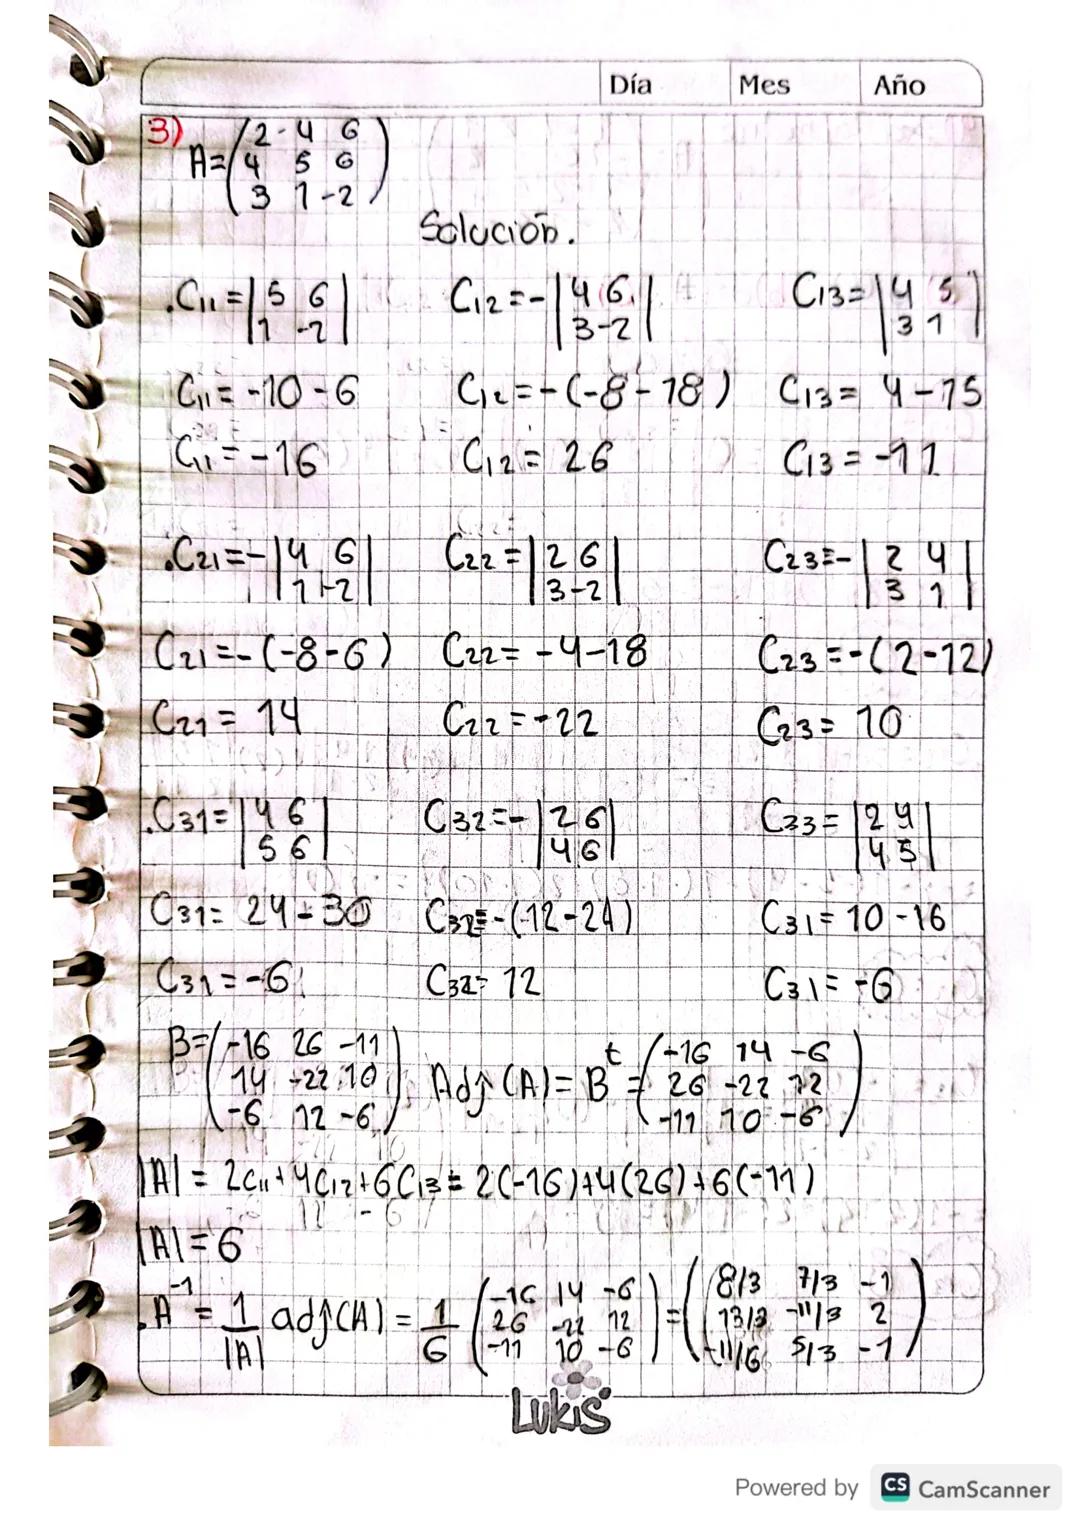 Día Mes Año
3) A=(2 -4 6
4 5 6
3 1 -2)
Solución.
.C11 = |5 6 C12 = -|4 6 C13 = |4 5
1 -2| 3 -2| 3 1|
C11 = -10 - 6 C12 = -(-8 - 18) C13 = 4 - 15
C11 = -16 C12 = 26 C13 = -11
.C21 = -|4 6 C22 = |2 6 C23 = -|2 4
1 -2| 3 -2| 3 1|
C21 = -(-8-6) C22 = -4-18 C23 = -(2-12)
C21 = 14 C22 = -22 C23 = 10
.C31 = |4 6 C32 = -|2 6 C33 = |2 4
5 6| 4 6| 4 5|
C31 = 24 - 30 C32 = -(12-24) C31 = 10 - 16
C31 = -6 C32 = 12 C31 = -6
B = (-16 26 -11 Adj (A) = B^t = (-16 14 -6
14 -22 10 26 -22 12
-6 12 -6) -11 10 -6)
|A| = 2C11 + 4C12 + 6C13 = 2(-16) + 4(26) + 6(-11)
|A| = 6
.A^-1 = 1/|A| adj(A) = 1/6 (-16 14 -6 = (8/3 7/3 -1
26 -22 12 13/3 -11/3 2
-11 10 -6) -11/6 5/3 -1)
Lukis
Powered by CS CamScanner